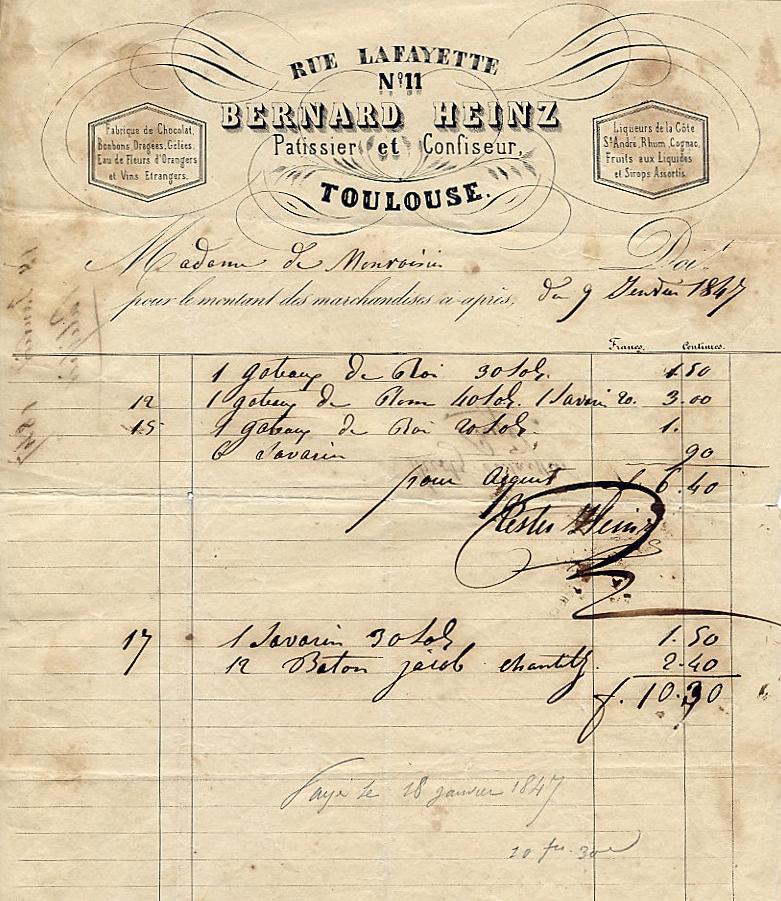 RUE LAFAYETTE
Nº 11
BERNARD HEINZ
Patissier et Confiseur,
TOULOUSE.
Fabrique de Chocolat,
Bonbons, Dragées, Gelées,
Eau de Fleurs d'Orangers
et Vins Etrangers.
Liqueurs de la Côte
St André, Rhum, Cognac,
Fruits aux Liquides
et Sirops Assortis.
Madame de Doit
pour le montant des marchandises ci-après, du 9 1847
Francs. Centimes.
1 gateaux de Roi 30 Sols. 1.50
12 1 gateaux de Plom 40 Sols. 1 Savarin 20. 3.00
15 1 gateaux de Roi 20 Sols 1.
6 Savarin 90
pour Aquit f. 6.40
Heinz
17 1 Savarin 30 Sols 1.50
12 Baton jacob chantilly. 2.40
f. 10.30
Payé le 18 janvier 1847
10 frs. 30c